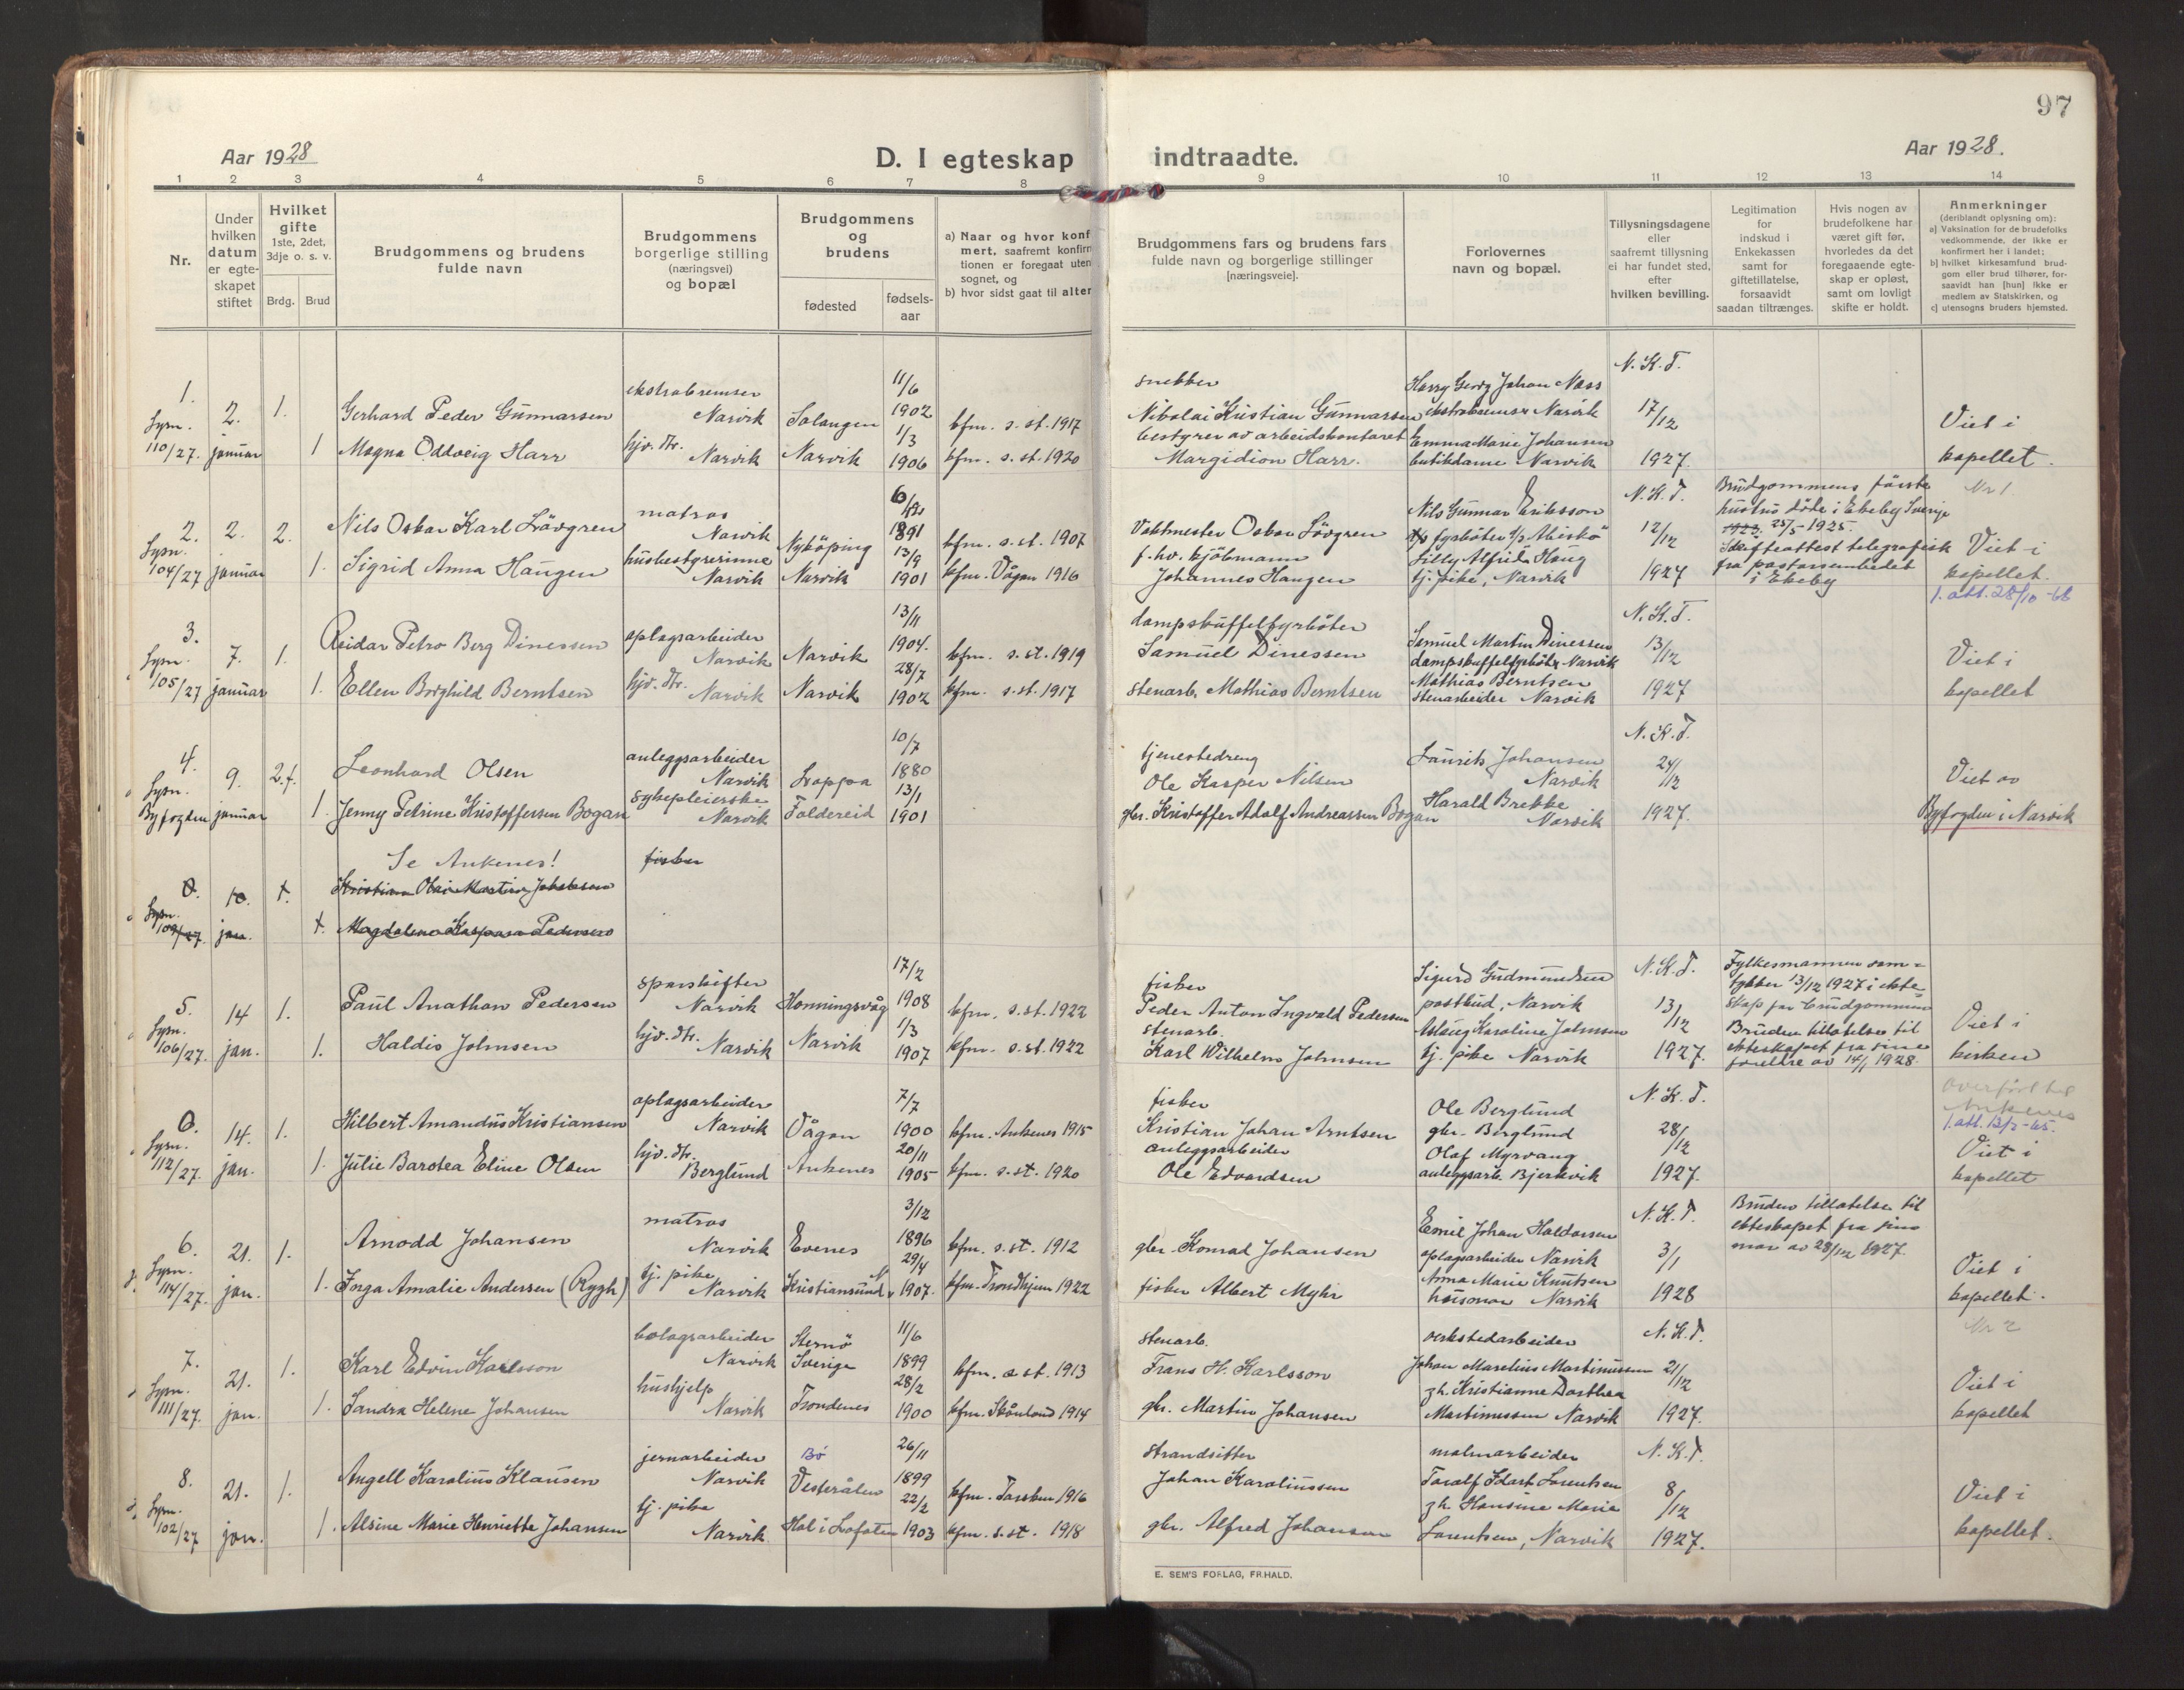 97
Aar 1928
D. I egteskap indtraadte.
Aar 1928.
1 2 3 4 5 6 7 8 9 10 11 12 13 14
Nr.
Under hvilken datum er egteskapet stiftet
Hvilket gifte
1ste, 2det, 3dje o. s. v.
Brdg. Brud
Brudgommens og brudens fulde navn
Brudgommens borgerlige stilling (næringsvei) og bopæl
Brudgommens og brudens
fødested
fødsels-aar
a) Naar og hvor konf
mert, saafremt konfir
tionen er foregaat uten
sognet, og
b) hvor sidst gaat til alter
Brudgommens fars og brudens fars
fulde navn og borgerlige stillinger
[næringsveie].
Forlovernes
navn og bopæl.
Tillysningsdagene
eller
saafremt tillysning
ei har fundet sted,
efter
hvilken bevilling.
Legitimation
for
indskud i
Enkekassen
samt for
giftetillatelse,
forsaavidt
saadan tiltrænges.
Hvis nogen av
brudefolkene har
været gift før,
hvorledes da det
foregaaende egte-
skap er opløst,
samt om lovligt
skifte er holdt.
Anmerkninger
(deriblandt oplysning om):
a] Vaksination for de brudefolks
vedkommende, der ikke er
konfirmert her i landet;
b] hvilket kirkesamfund brud-
gom eller brud tilhører, for-
saavidt han [hun] ikke er
medlem av Statskirken, og
c] utensogns bruders hjemsted.
1. Lysn. 110/27. 2. januar 1. 1
Gerhard Peder Gunnarsen ekstrabremser Narvik Salangen 11/6 1902 kfm. s. st. 1917
Magna Oddveig Harr hjv. dtr. Narvik Narvik 1/3 1906 kfm. s. st. 1920
snekker Nikolai Kristian Gunnarsen
bestyrer av arbeidskontoret Margidion Harr.
Harry Georg Johan Næss ekstrabremser Narvik
Emma Marie Johansen butikdame Narvik
N. K. T. 17/12 1927.
Viet i kapellet.
2. Lysn. 104/27 2. januar 2. 1.
Nils Oskar Karl Lövgren matros Narvik Nyköping 6/12 1891 kfm. s. st. 1907
Sigrid Anna Haugen husbestyrerinne Narvik Narvik 13/9 1901 kfm. Vågan 1916
Vaktmester Oskar Lövgren
f. hv. kjøbmann Johannes Haugen
Nils Gunnar Eriksson fyrbøter s/s Abiskö
Lilly Alfrid Haug tj. pike, Narvik
N. K. T. 12/12 1927
Brudgommens første
hustru døde i Ekeby Sverige
1923. 25/5-1925.
Skifteattest telegrafisk
fra pastorsembedet
i Ekeby
Nr 1.
Viet i kapellet.
1. att. 28/10-66
3. Lysn. 105/27 7. januar 1. 1.
Reidar Petro Berg Dinessen oplagsarbeider Narvik Narvik 13/11 1904. kfm. s. st. 1919
Ellen Borghild Berntsen hjv. dtr. Narvik Narvik 28/7 1902 kfm. s. st. 1917
dampskuffelfyrbøter Samuel Dinessen
stenarb. Mathias Berntsen
Samuel Martin Dinessen dampskuffelfyrbøter Narvik
Mathias Berntsen stenarbeider Narvik
N. K. T. 13/12 1927
Viet i kapellet
4. Lysn. Byfogden 9. januar 2. f. 1.
Leonhard Olsen anleggsarbeider Narvik Loppa 10/7 1880
Jenny Petrine Kristoffersen Bogan sykepleierske Narvik Foldereid 13/1 1901
tjenestedreng Ole Kasper Nilsen
gbr. Kristoffer Adolf Andreassen Bogan
Laurits Johansen Narvik
Harald Brekke Narvik
N. K. T. 24/12 1927.
Viet av Byfogden i Narvik
0. Lysn. 109/27. 10. jan. 1. 1.
Se Ankenes!
Kristian Olai Martin Jakobsen fisker
Magdalena Kaspara Pedersen
5. Lysn. 106/27. 14 jan. 1. 1.
Paul Anathon Pedersen sporskifter Narvik Honningsvåg 17/2 1908 kfm. s. st. 1922
Haldis Johnsen hjv. dtr. Narvik Narvik 1/3 1907 kfm. s. st. 1922
fisker Peder Anton Ingvald Pedersen
stenarb. Karl Wilhelm Johnsen
Sigurd Gudmundsen postbud, Narvik
Aslaug Karoline Johnsen tj. pike Narvik
N. K. T. 13/12 1927.
Fylkesmannen sam-
tykker 13/12 1927 i ekte-
skap for brudgommen
Brudens tillatelse til
ekteskapet fra sine
foreldre av 14/1 1928.
Viet i kirken
0. Lysn. 112/27. 14. jan. 1. 1.
Hilbert Amandus Kristiansen oplagsarbeider Narvik Vågan 7/7 1900 kfm. Ankenes 1915
Julie Bardea Eline Olsen hjv. dtr. Berglund Ankenes 20/11 1905 kfm. s. st. 1920
fisker Kristian Johan Arntsen
anleggsarbeider Ole Edvardsen
Ole Berglund gbr. Berglund
Olaf Myrvang anleggsarb. Bjerkvik
N. K. T. 28/12 1927.
Overført til Ankenes
1. att. 13/3-65.
Viet i kapellet
6. Lysn. 114/27. 21. jan. 1. 1.
Arnodd Johansen matros Narvik Evenes 3/12 1896 kfm. s. st. 1912
Inga Amalie Andersen (Rygh) tj. pike Narvik Kristiansund N. 29/4 1907. kfm. Trondhjem 1922
gbr. Konrad Johansen
fisker Albert Myhr
Emil Johan Haldorsen oplagsarbeider Narvik
Anna Marie Knutsen husmor Narvik
N. K. T. 3/1 1928
Brudens tillatelse til
ekteskapet fra sin
mor av 28/12 1927.
Viet i kapellet.
7. Lysn. 111/27. 21. jan. 1. 1.
Karl Edvin Karlsson bolagsarbeider Narvik Sternö Sverige 11/6 1899 kfm. s. st. 1913
Sandra Helene Johansen hushjelp Narvik Trondenes 28/2 1900 kfm. Skånland 1914
stenarb. Frans H. Karlsson
gbr. Martin Johansen
verkstedarbeider Johan Marelius Martinussen
gh. Kristianne Dorthea Martinussen Narvik
N. K. T. 21/12 1927.
Nr 2
Viet i kapellet
8. Lysn. 102/27 21. jan. 1. 1.
Angell Karolius Klausen jernarbeider Narvik Bö Vesterålen 26/11 1899 kfm. Torsken 1916
Alsine Marie Henriette Johansen tj. pike Narvik. Hol i Lofoten 22/2 1903 kfm. s. st. 1918
strandsitter Johan Karoliussen
gbr. Alfred Johansen
malmarbeider Toralf Edart Lorentsen
gh. Hansine Marie Lorentsen, Narvik
N. K. T. 8/12 1927.
Viet i kapellet.
E. SEM'S FORLAG, FR.HALD.